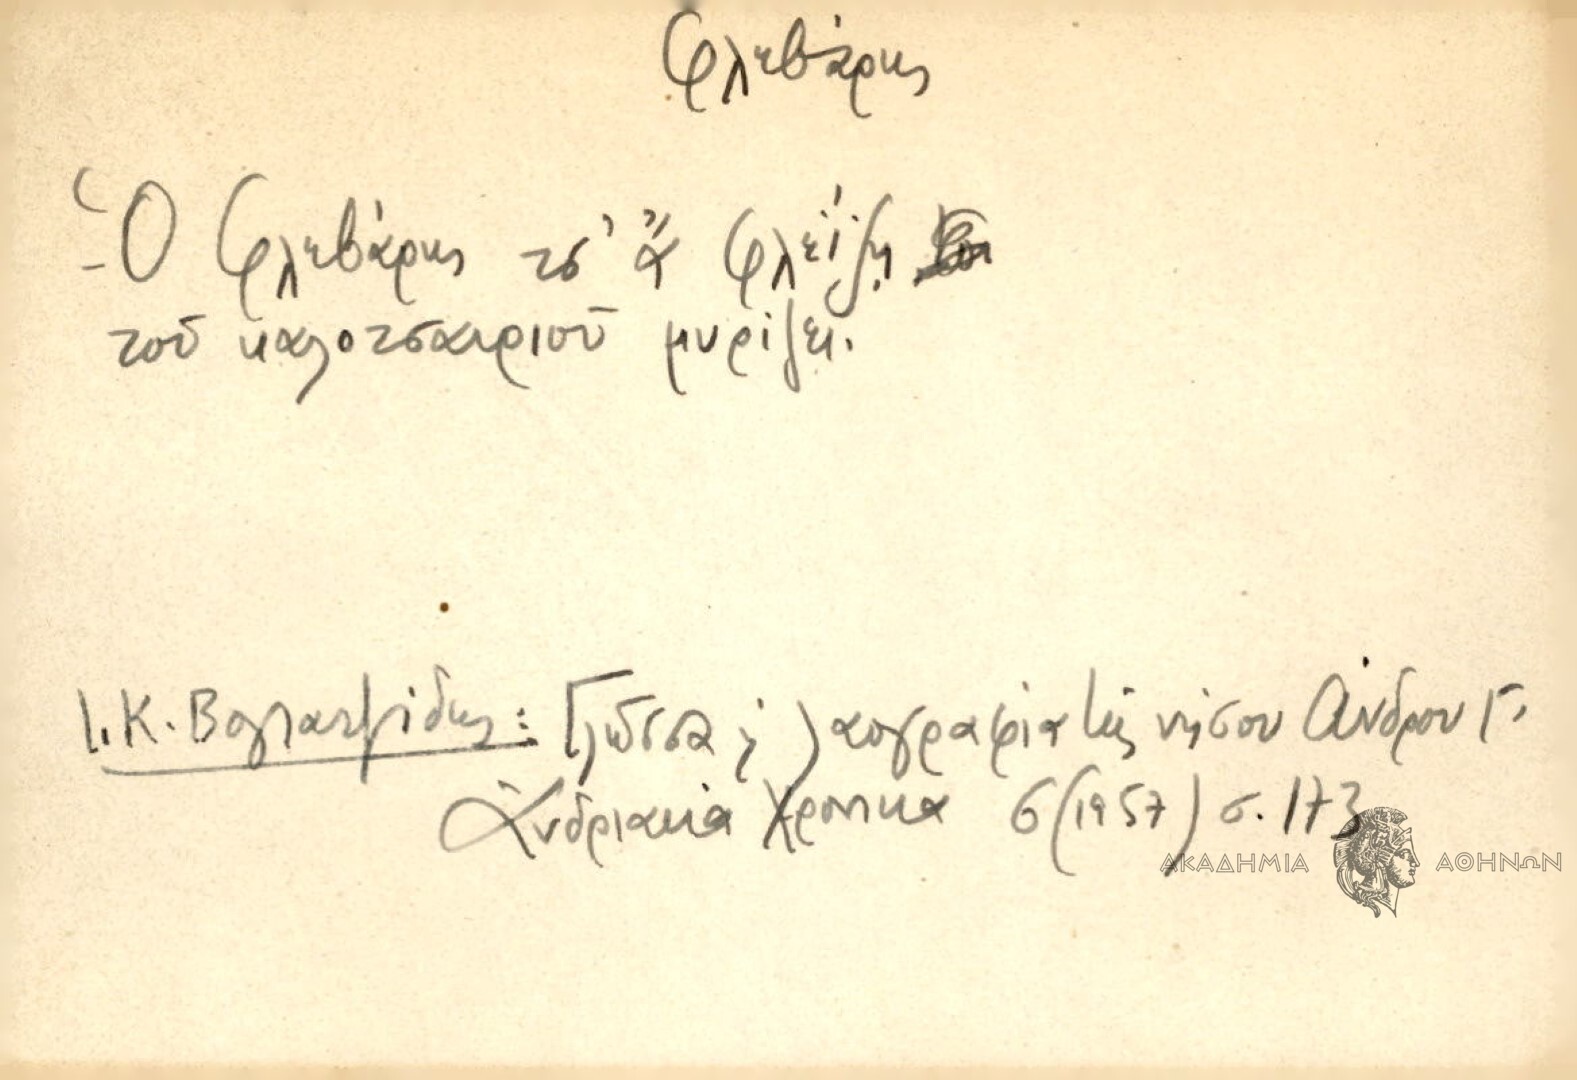 Φλεβάρης
Ὁ Φλεβάρης τσ' ἄ φλεΐζῃ
τοῦ καλοτσαιριοῦ μυρίζει.
Ι. Κ. Βογιατζίδης: Γλῶσσα κ λαογραφία τῆς νήσου Ἄνδρου Γ'
Ἀνδριακὰ Χρονικά 6 (1957) σ. 173
ΑΚΑΔΗΜΙΑ ΑΘΗΝΩΝ